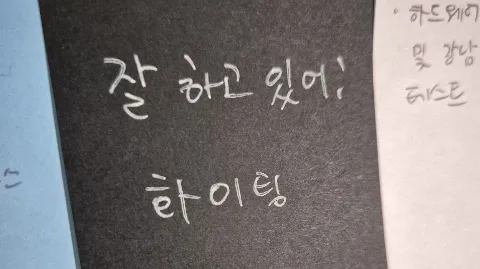 잘 하고 있어!
화이팅
· 하드웨어
및 강남
테스트